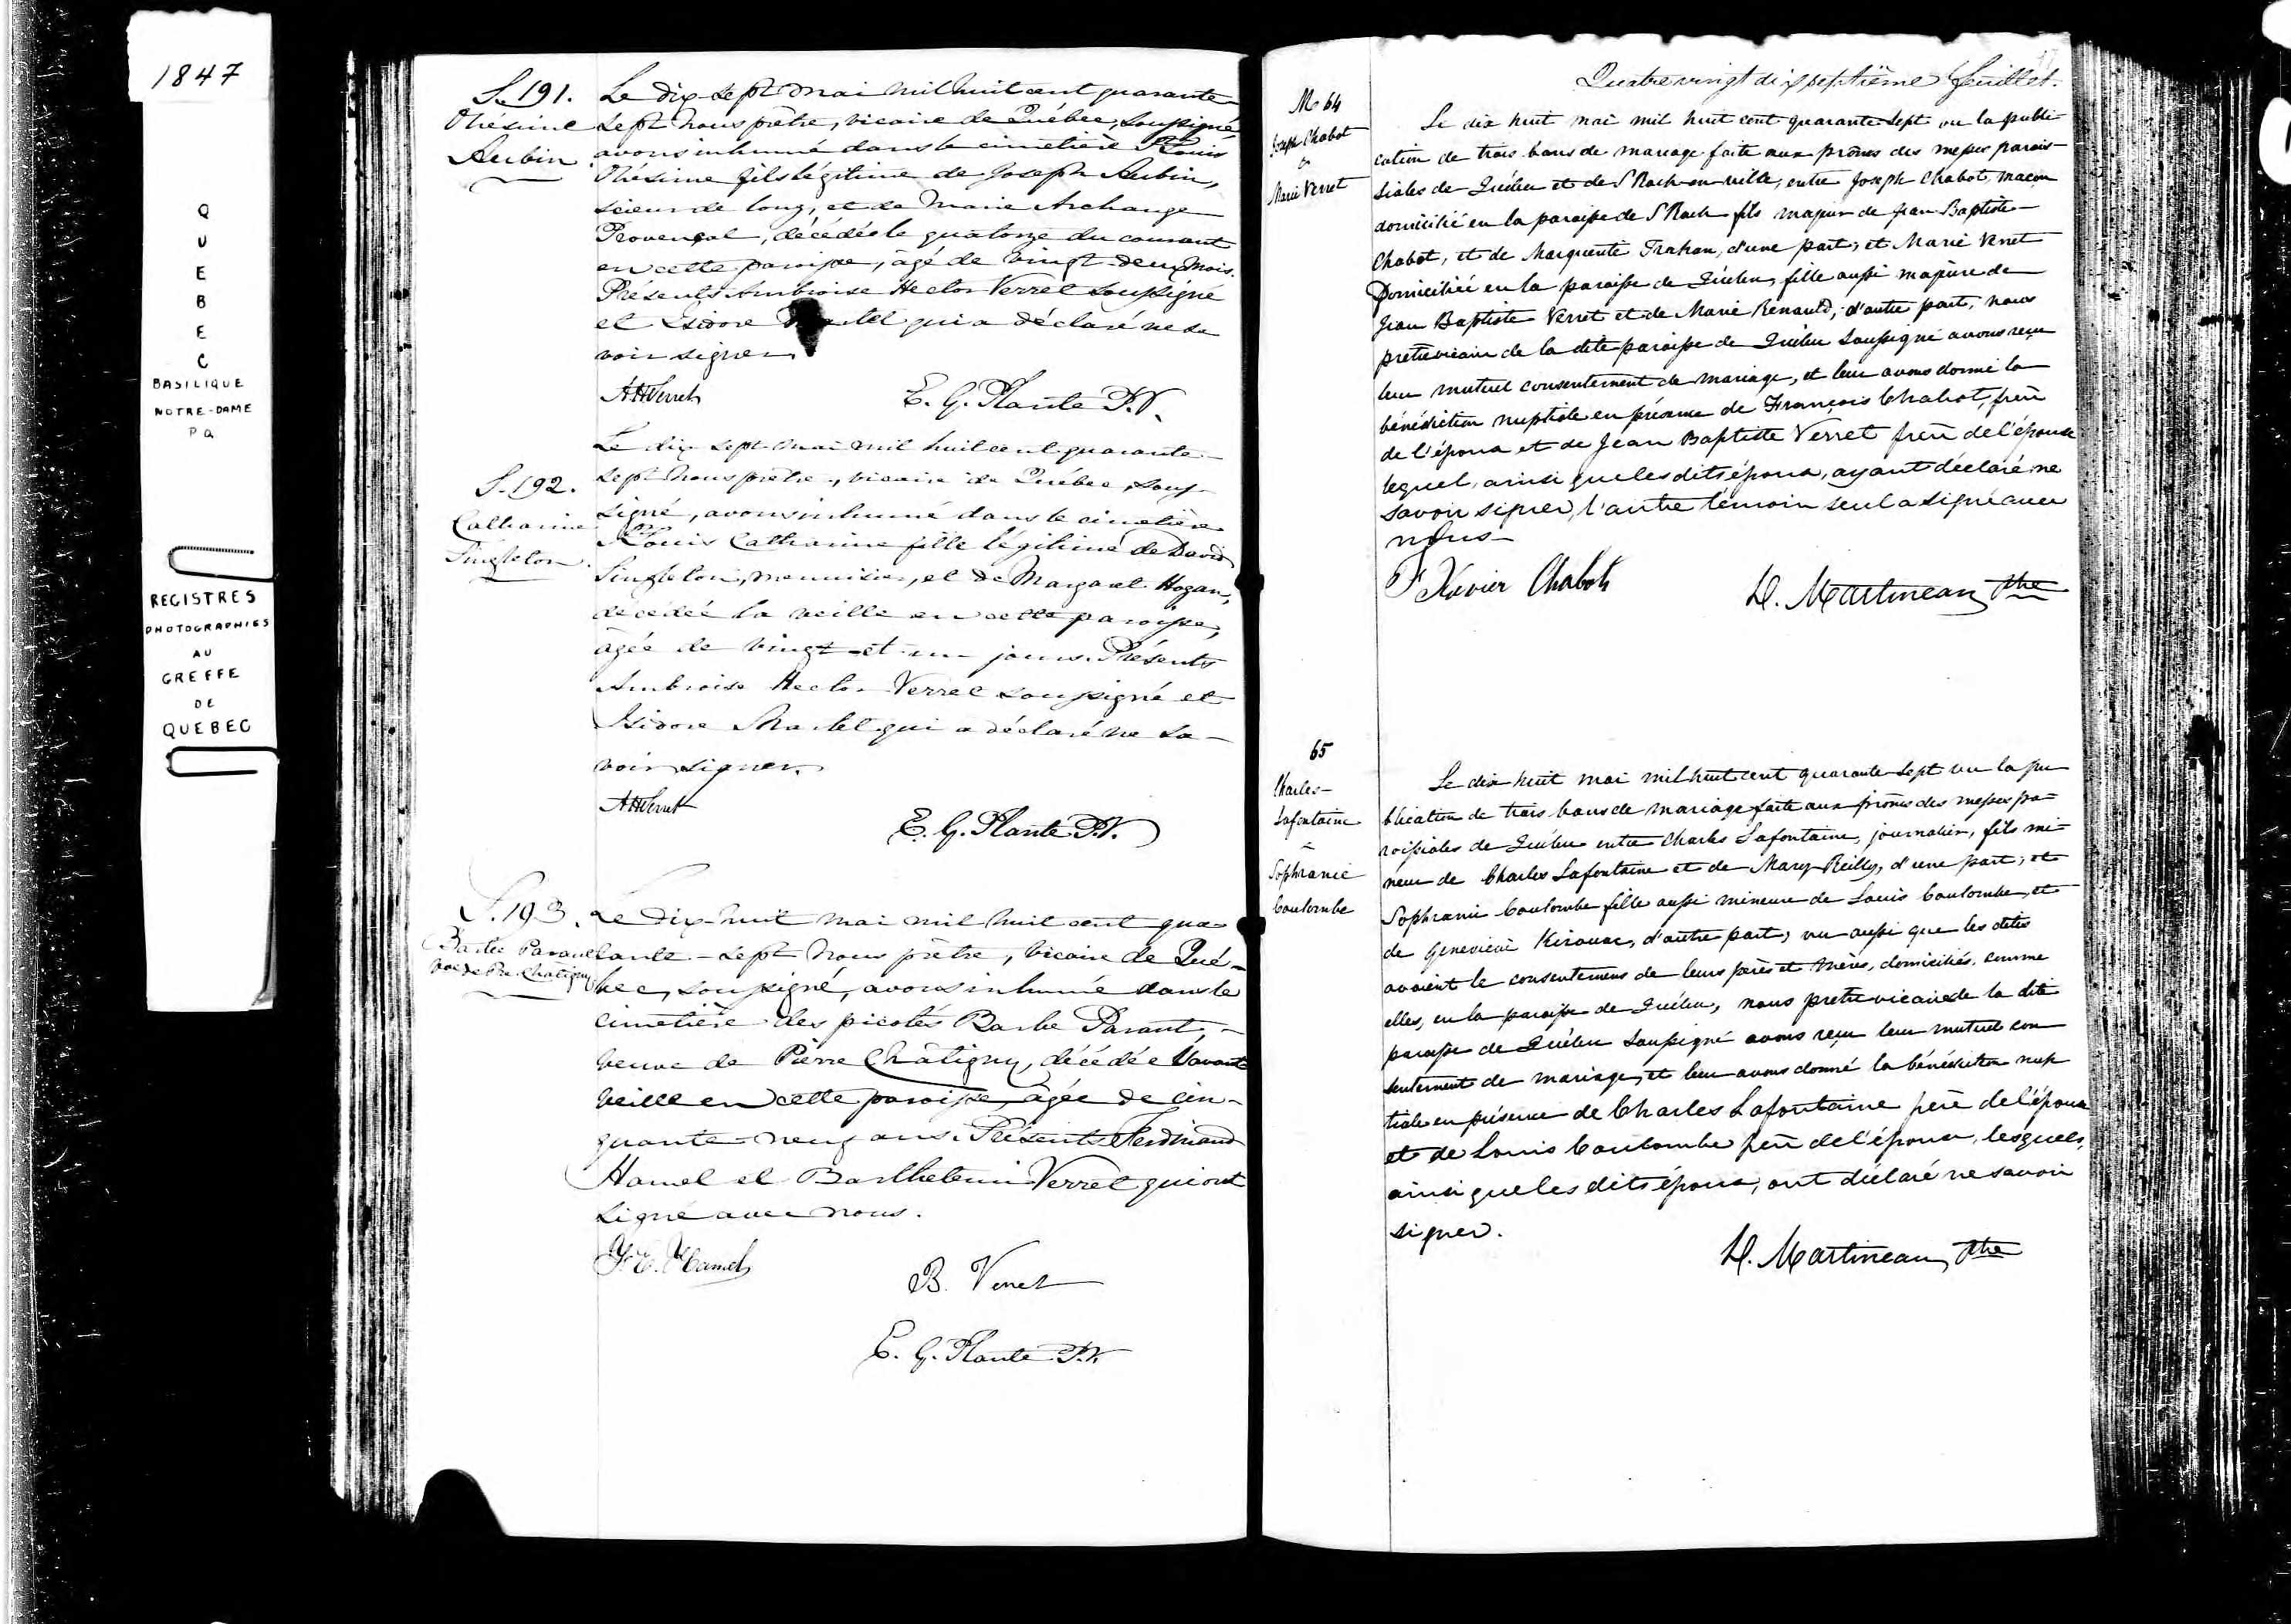 1847
QUEBEC
BASILIQUE
NOTRE-DAME
PQ
REGISTRES
PHOTOGRAPHIES
AU
GREFFE
DE
QUEBEC
S. 191.
Onésime
Aubin
Le dix-sept mai mil huit cent quarante
sept nous prêtre, vicaire de Québec, soussigné
avons inhumé dans le cimetière St Louis
Onésime fils légitime de Joseph Aubin,
scieur de long, et de Marie Archange
Provençal, décédé le quatorze du courant
en cette paroisse, âgé de vingt-deux mois.
Présents Ambroise Hector Verret soussigné
et Isidore Martel qui a déclaré ne sa
voir signer.
AHVerret
E. G. Plante P.V.
S. 192.
Catharine
Singleton
Le dix-sept mai mil huit cent quarante-
sept nous prêtre, vicaire de Québec, sous-
signé, avons inhumé dans le cimetière
St Louis Catharine fille légitime de David
Singleton, menuisier, et de Margaret Hogan,
décédée la veille en cette paroisse,
âgée de vingt-et-un jours. Présents
Ambroise Hector Verret soussigné et
Isidore Martel qui a déclaré ne sa-
voir signer.
AHVerret
E. G. Plante P.V.
S. 193.
Barbe Parant
Vve de Pre Chatigny
Le dix-huit mai mil huit cent qua-
rante-sept nous prêtre, vicaire de Qué-
bec, soussigné, avons inhumé dans le
cimetière des picotés Barbe Parant,-
veuve de Pierre Châtigny, décédée l'avant
veille en cette paroisse, âgée de cin-
quante-neuf ans. Présents Ferdinand
Hamel et Barthelemi Verret qui ont
signé avec nous.
Hamel
B. Verret
E. G. Plante P.V.
Quatrevingt dix septième feuillet.
M 64
Joseph Chabot
&
Marie Verret
Le dix huit mai mil huit cent quarante sept vu la publi
cation de trois bans de mariage faite aux prônes des messes parois-
siales de Québec et de St Roch-en-ville, entre Joseph Chabot, maçon
domicilié en la paroisse de St Roch fils majeur de Jean Baptiste
Chabot, et de Marguerite Trahan, d'une part, et Marie Verret
Domiciliée en la paroisse de Québec, fille aussi majeure de
Jean Baptiste Verret et de Marie Renauld, d'autre part, nous
prêtre vicaire de la dite paroisse de Québec soussigné avons reçu
leur mutuel consentement de mariage, et leur avons donné la
bénédiction nuptiale en présence de François Chabot, frère
de l'époux et de Jean Baptiste Verret frère de l'épouse
lequel, ainsi que les dits époux, ayant déclaré ne
savoir signer, l'autre témoin seul a signé avec
nous-
F Xavier Chabot
D. Martineau Ptre
65
Charles-
Lafontaine
&
Sophranie
Coulombe
Le dix huit mai mil huit cent quarante sept vu la pu
blication de trois bans de mariage faite aux prônes des messes pa-
roissiales de Québec entre Charles Lafontaine, journalier, fils mi-
neur de Charles Lafontaine et de Mary Reilly, d'une part; et
Sophranie Coulombe fille aussi mineure de Louis Coulombe, et
de Geneviève Kirouac, d'autre part; vu aussi que les dites
avaient le consentement de leurs pères et mères, domiciliés, comme
elles, en la paroisse de Québec, nous prêtre vicaire de la dite
paroisse de Québec soussigné avons reçu leur mutuel con
sentement de mariage, et leur avons donné la bénédiction nup
tiale en présence de Charles Lafontaine père de l'époux
et de Louis Coulombe père de l'épouse, lesquels,
ainsi que les dits époux, ont déclaré ne savoir
signer.
D. Martineau, Ptre